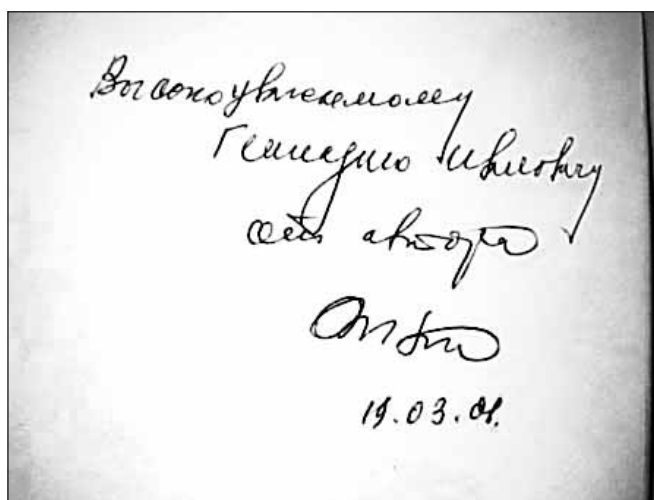 Высокоуважаемому
Геннадию Ивановичу
от автора
19.03.01.